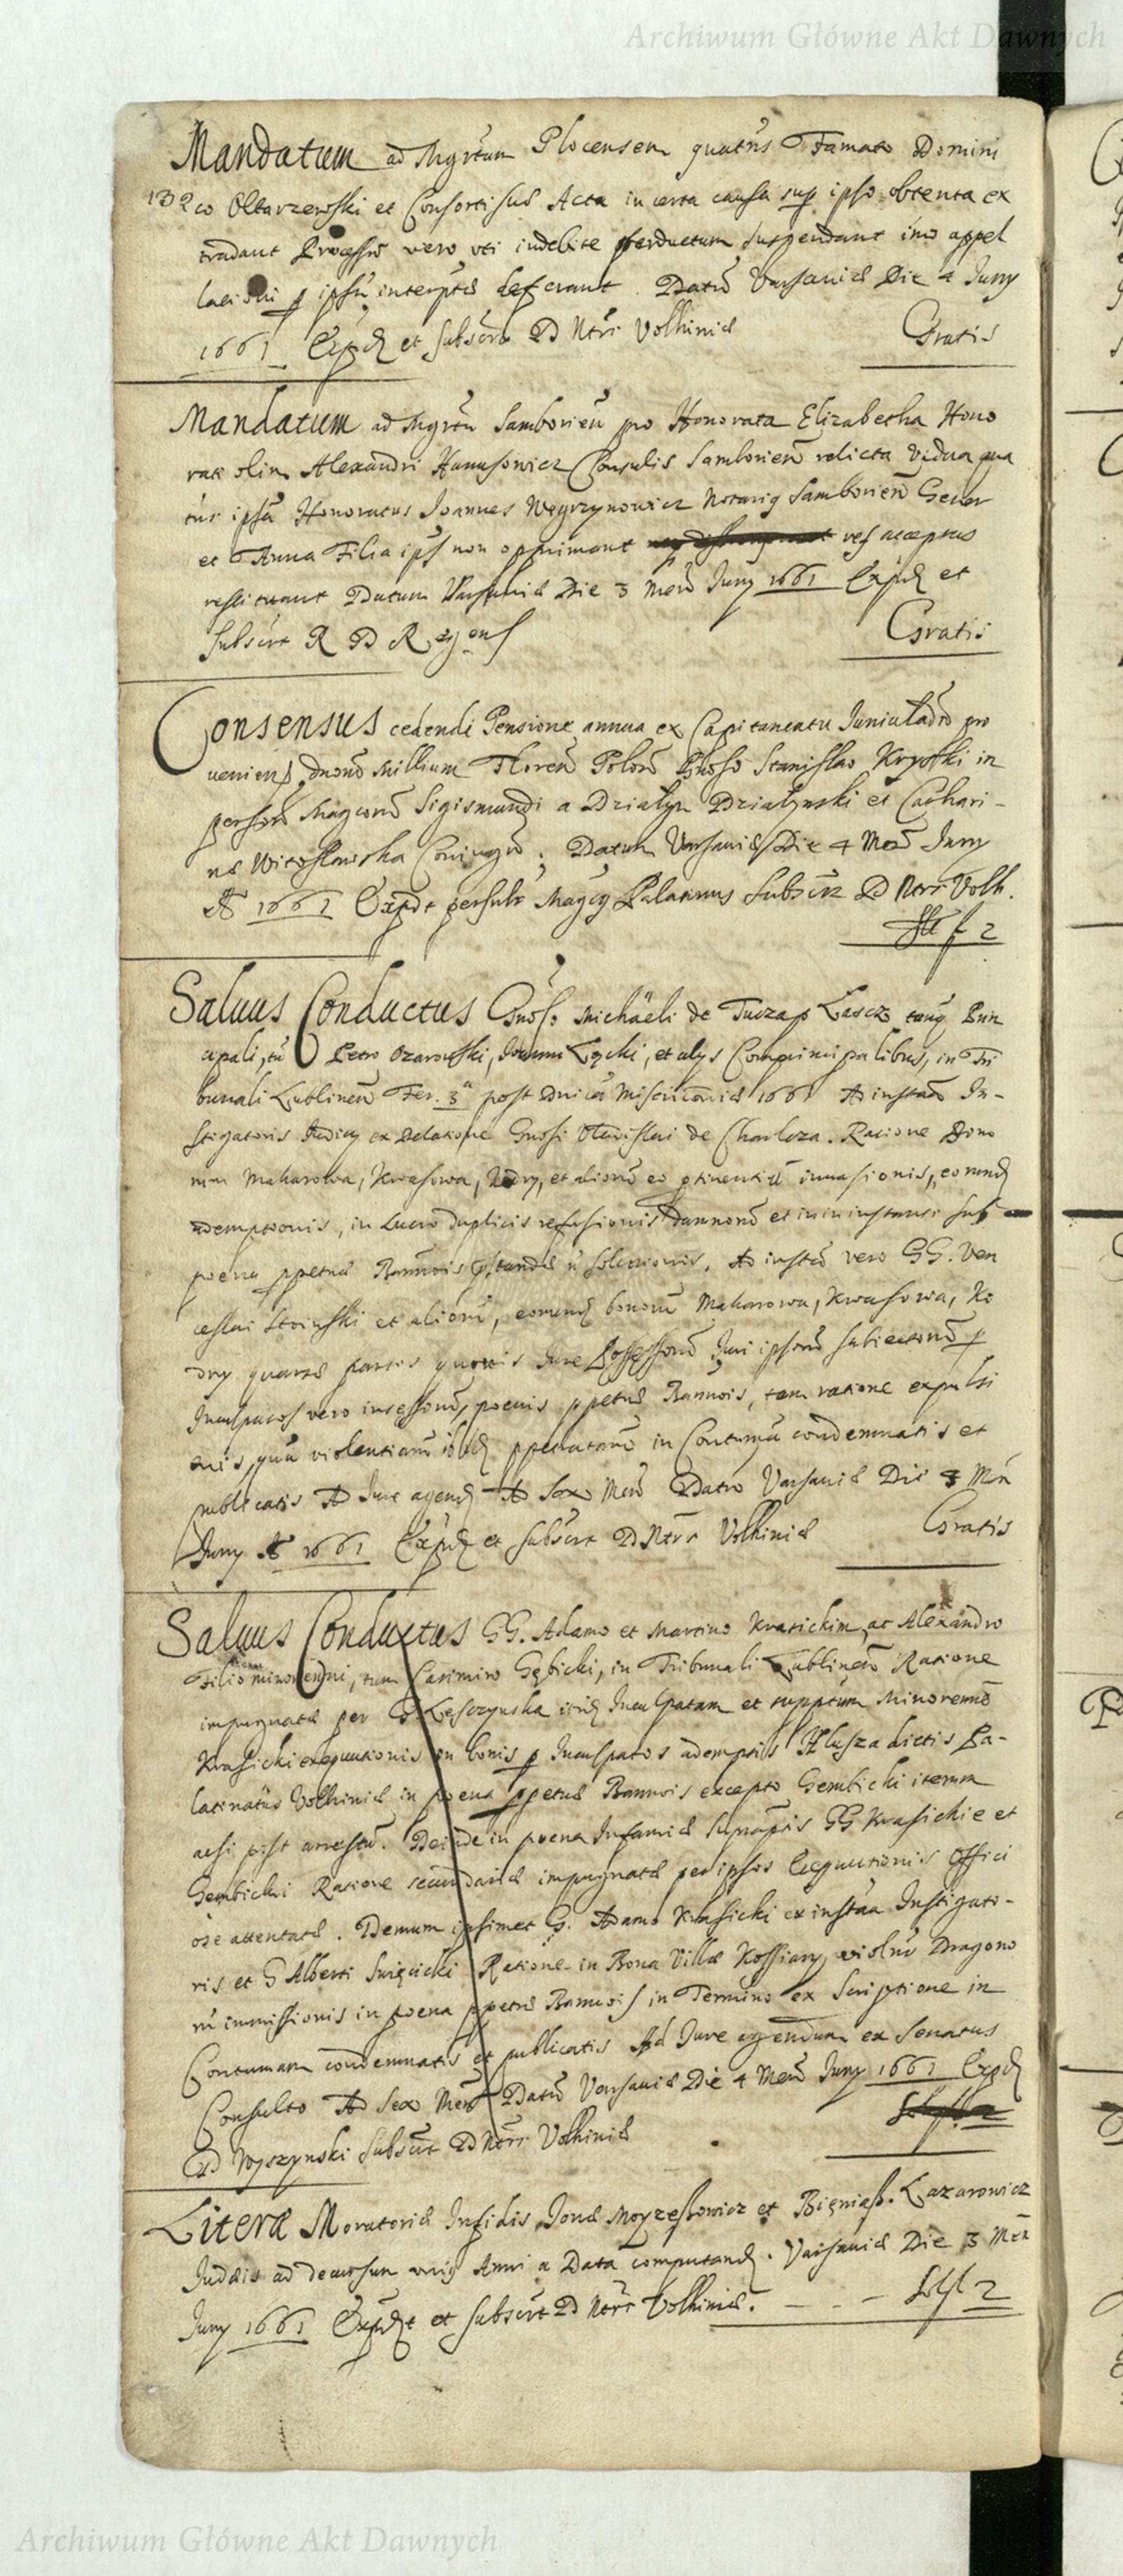 Archiwum Główne Akt Dawnych
Mandatum ad Mgrtum Plocensem quatns Famato Domini
132 co Oltarzewski et Consortibus Acta in certa causa sup ipso obtenta ex
tradant Processu vero uti indebite perductum suspendant imo appel
laoni p ipsu interptæ deferant. Datu Varsaviæ Die 4 Juny
1661 et Subscr PD Ntri Volhiniæ Gratis
Mandatum ad Mgrtu Samborien pro Honorata Elizabetha Hono
rati olim Alexandri Hanusowicz Consulis Samborien relicta Vidua qua
tns ipsa Honoratus Joannes Węgrzynowicz Notarig Samborien Gener
et Anna Filia ips non opprimant res acceptas
restituant Datum Varsaviæ Die 3 Men Juny 1661 Expd et
Subscrt R P D Regens Gratis
Consensus cedendi Pensione annua ex Capitaneatu Juniuladen pro
venien duoru Millium Floren Polon Gnoso Stanislao Krypski in
person Magcoru Sigismundi a Dzialyn Dzialynski et Cathari-
næ Witosławska Coniugu. Datum Varsaviæ Die 4 Men Juny
Ao 1661 Expdt Magcg Palatinus Subscrt PD Ntri Volh.
f 2
Salvus Conductus Gnoso Michaeli de Tuczap Łascz tanq Prin
cipali, tu Petro Ozarowski, Joanni Łącki, et alys Comprincipalibus, in Tri
bunali Lublinen Fer. 3a post Dnica Misericordiæ 1661 Ad instan In-
stigatoris Judicy ex Delatione Gnosi Vladislai de Charleza. Ratione Bono
rum Makarowa, Kwasowa, et alioru eo ptinentiu invasionis, eorund
ademptionis, in Lucro duplicis refusionis Damnoru et in instanti sub
poena ppetuæ Bannois pstandæ u solutionis. Ad insta vero GG. Ven
ceslai Stoinski et alioru, eorund bonoru Makarowa, Kwasowa, Ko
dry quartæ partis quovis Jure Possessoru Juri ipsoru subiectoru p
Inculpatos vero insessoru, poenis ppetuæ Bannois, tam ratione expulsi
onis, qua violentiaru ibid ppetrataru in Contuma condemnatis et
publicatis Ad Jure agend Ad Sex Men Datu Varsaviæ Die 3 Mn
Juny Ao 1661 Expd et Subscrt PD Ntri Volhiniæ Gratis
Salvus Conductus GG. Adamo et Martino Krasickim, ac Alexandro
Filio minorenni, tum Casimiro Gębicki, in Tribunali Lublinen Ratione
impugnatæ per G. Lesczynska itid Inculpatam et suppstum Minorennē
Krasicki exequutionis in bonis p Inculpatos ademptis Hlusza dictis Pa-
latinatus Volhiniæ in poena ppetuæ Bannois excepto Gembicki iterum
acsi post arrestu. Deinde in poena Infamiæ supraptis GG Krasickie et
Gembicki Ratione secundariæ impugnatæ per ipsos Exequutionis Offici
ose attentatæ. Demum ipsimet G. Adamo Krasicki ex instan Instigato-
ris et G Alberti Swięcicki Ratione in Bona Villæ Kossiary violnæ Dragono
ru immissionis in poena ppetuæ Bannois in Termino ex Scriptione in
Contumam condemnatis et publicatis Ad Jure agendum ex Senatus
Consulto Ad Sex Men Datu Varsaviæ Die 4 Men Juny 1661 Expd
GD Wyszynski Subscrt PD Ntri Volhiniæ
Literæ Moratoriæ Infidis Jonæ Moyzeszowicz et Bieniasz. Lazarowicz
Judæis ad decursum unig Anni a Data computand. Varsaviæ Die 3 Men
Juny 1661 Expdt et Subscrt PD Ntri Volhiniæ. - . - . - 2
Archiwum Główne Akt Dawnych